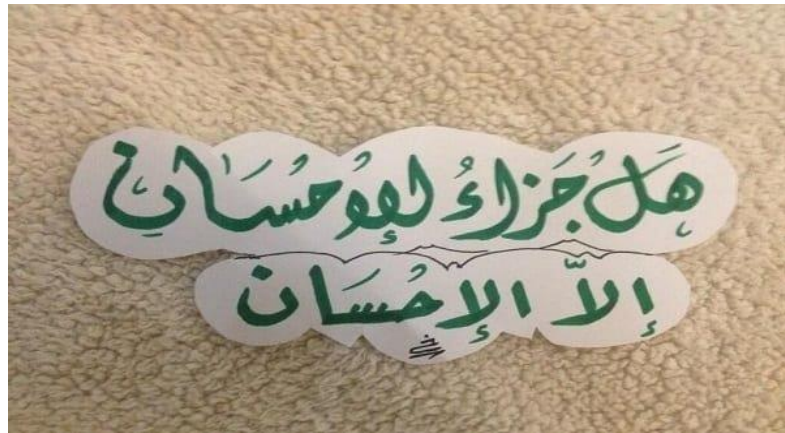 هَلْ جَزَاءُ الإِحْسَانِ
إِلاَّ الإِحْسَان